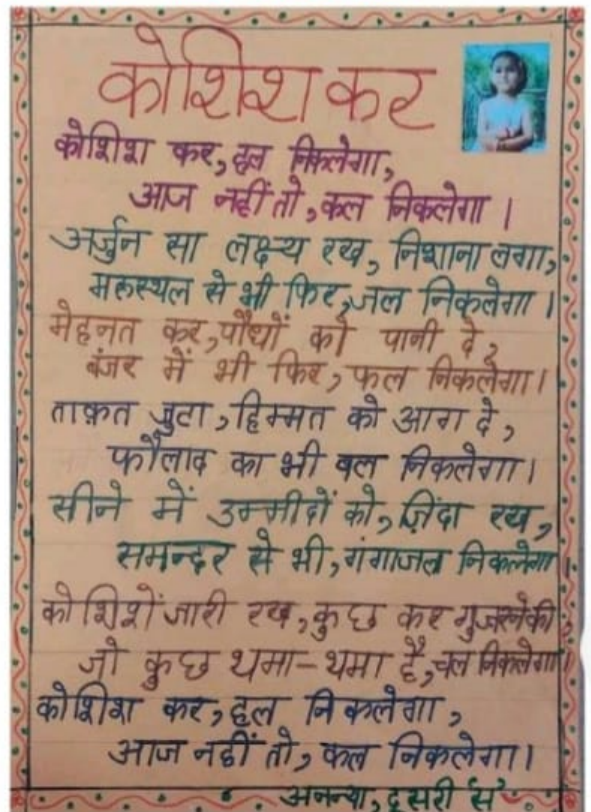 कोशिश कर
कोशिश कर, हल निकलेगा,
आज नहीं तो, कल निकलेगा।
अर्जुन सा लक्ष्य रख, निशाना लगा,
मरुस्थल से भी फिर, जल निकलेगा।
मेहनत कर, पौधों को पानी दे,
बंजर में भी फिर, फल निकलेगा।
ताक़त जुटा, हिम्मत को आग दे,
फौलाद का भी बल निकलेगा।
सीने में उम्मीदों को, ज़िंदा रख,
समन्दर से भी, गंगाजल निकलेगा।
कोशिशें जारी रख, कुछ कर गुजरनेकी,
जो कुछ थमा-थमा है, चल निकलेगा।
कोशिश कर, हल निकलेगा,
आज नहीं तो, कल निकलेगा।
अनन्या, दुसरी 'स'